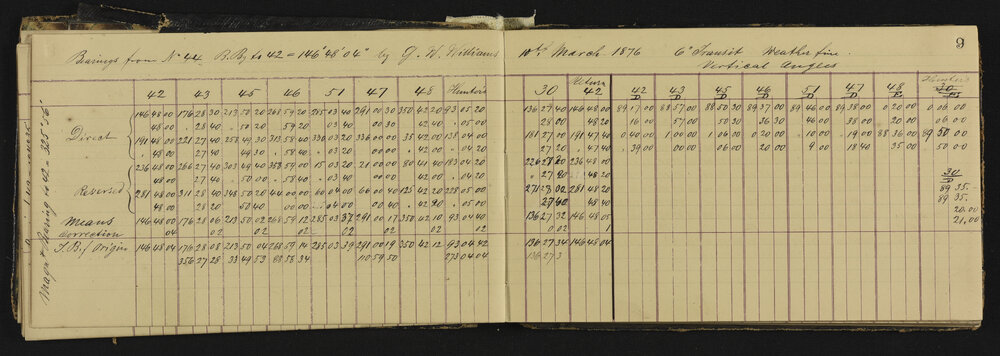 Bearings from No 44 B.By to 42 = 146° 48' 04" by G. W. Williams 10th March 1876 6" Transit Weather fine. 9
Vertical Angles
42 43 45 46 51 47 48 Hunters 30 Return 42 42 43 45 46 51 47 48 Hunters 30
D D D D D D D
Direct
146 48 00 176 28 30 213 50 20 268 59 20 285 03 40 291 00 30 350 42 20 93 05 20 136 27 40 146 48 00 89 17 00 88 57 00 88 50 30 89 37 00 89 46 00 89 38 00 20 00 0 06 00
48 00 28 40 50 20 59 20 03 40 00 30 42 40 05 00 28 00 48 20 16 00 57 00 50 30 36 30 46 00 38 00 20 00
191 48 00 221 27 40 258 49 30 313 58 40 330 03 20 336 00 00 35 42 00 138 04 00 181 27 00 191 47 40 0 40 00 1 00 00 1 06 00 0 20 00 10 00 19 00 88 36 00 89 50 00
48 00 27 40 49 30 58 40 03 20 00 00 42 00 04 20 27 20 47 40 39 00 00 00 06 00 20 00 9 00 18 40 35 00 50 00
Reversed
236 48 00 266 27 40 303 49 40 358 59 00 15 03 20 21 00 00 80 41 40 183 04 20 226 27 20 236 48 00
48 00 27 40 50 00 58 40 03 40 00 00 42 00 04 20 27 20 48 20
281 48 00 311 28 40 348 50 20 44 00 00 60 04 00 66 00 40 125 42 20 228 05 00 271 28 00 281 48 20
48 00 28 20 50 40 00 00 04 00 00 40 42 20 05 00 27 40 48 40
30
D
89 35
89 35
20.00
21.00
Means 146 48 00 176 28 06 213 50 02 268 59 12 285 03 37 291 00 17 350 42 10 93 04 40 136 27 32 146 48 05
Correction 04 02 02 02 02 02 02 02 0 02 1
T.B. / Origin 146 48 04 176 28 08 213 50 04 268 59 14 285 03 39 291 00 19 350 42 12 93 04 42 136 27 34 146 48 04
356 27 28 33 49 53 88 58 34 110 59 50 273 04 04 136 27 3
Magn: Bearing to 42 =